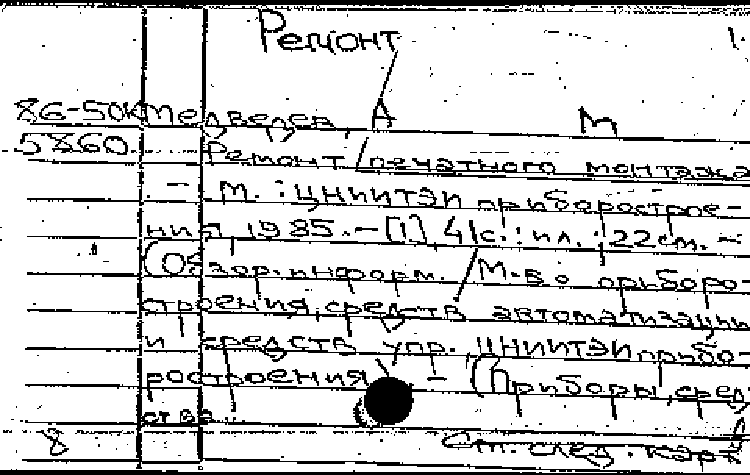 Ремонт 1.
86-50К Медведев, А М
5860 Ремонт печатного монтажа
– М. : ЦНИИТЭИ приборострое-
ния, 1985. – [1], 41с. : ил. ; 22см. –
(Обзор. информ. / М-во приборо-
строения, средств автоматизации
и средств упр., ЦНИИТЭИ прибо-
ростроения) – (Приборы, сред-
ства
8 См. след. карт